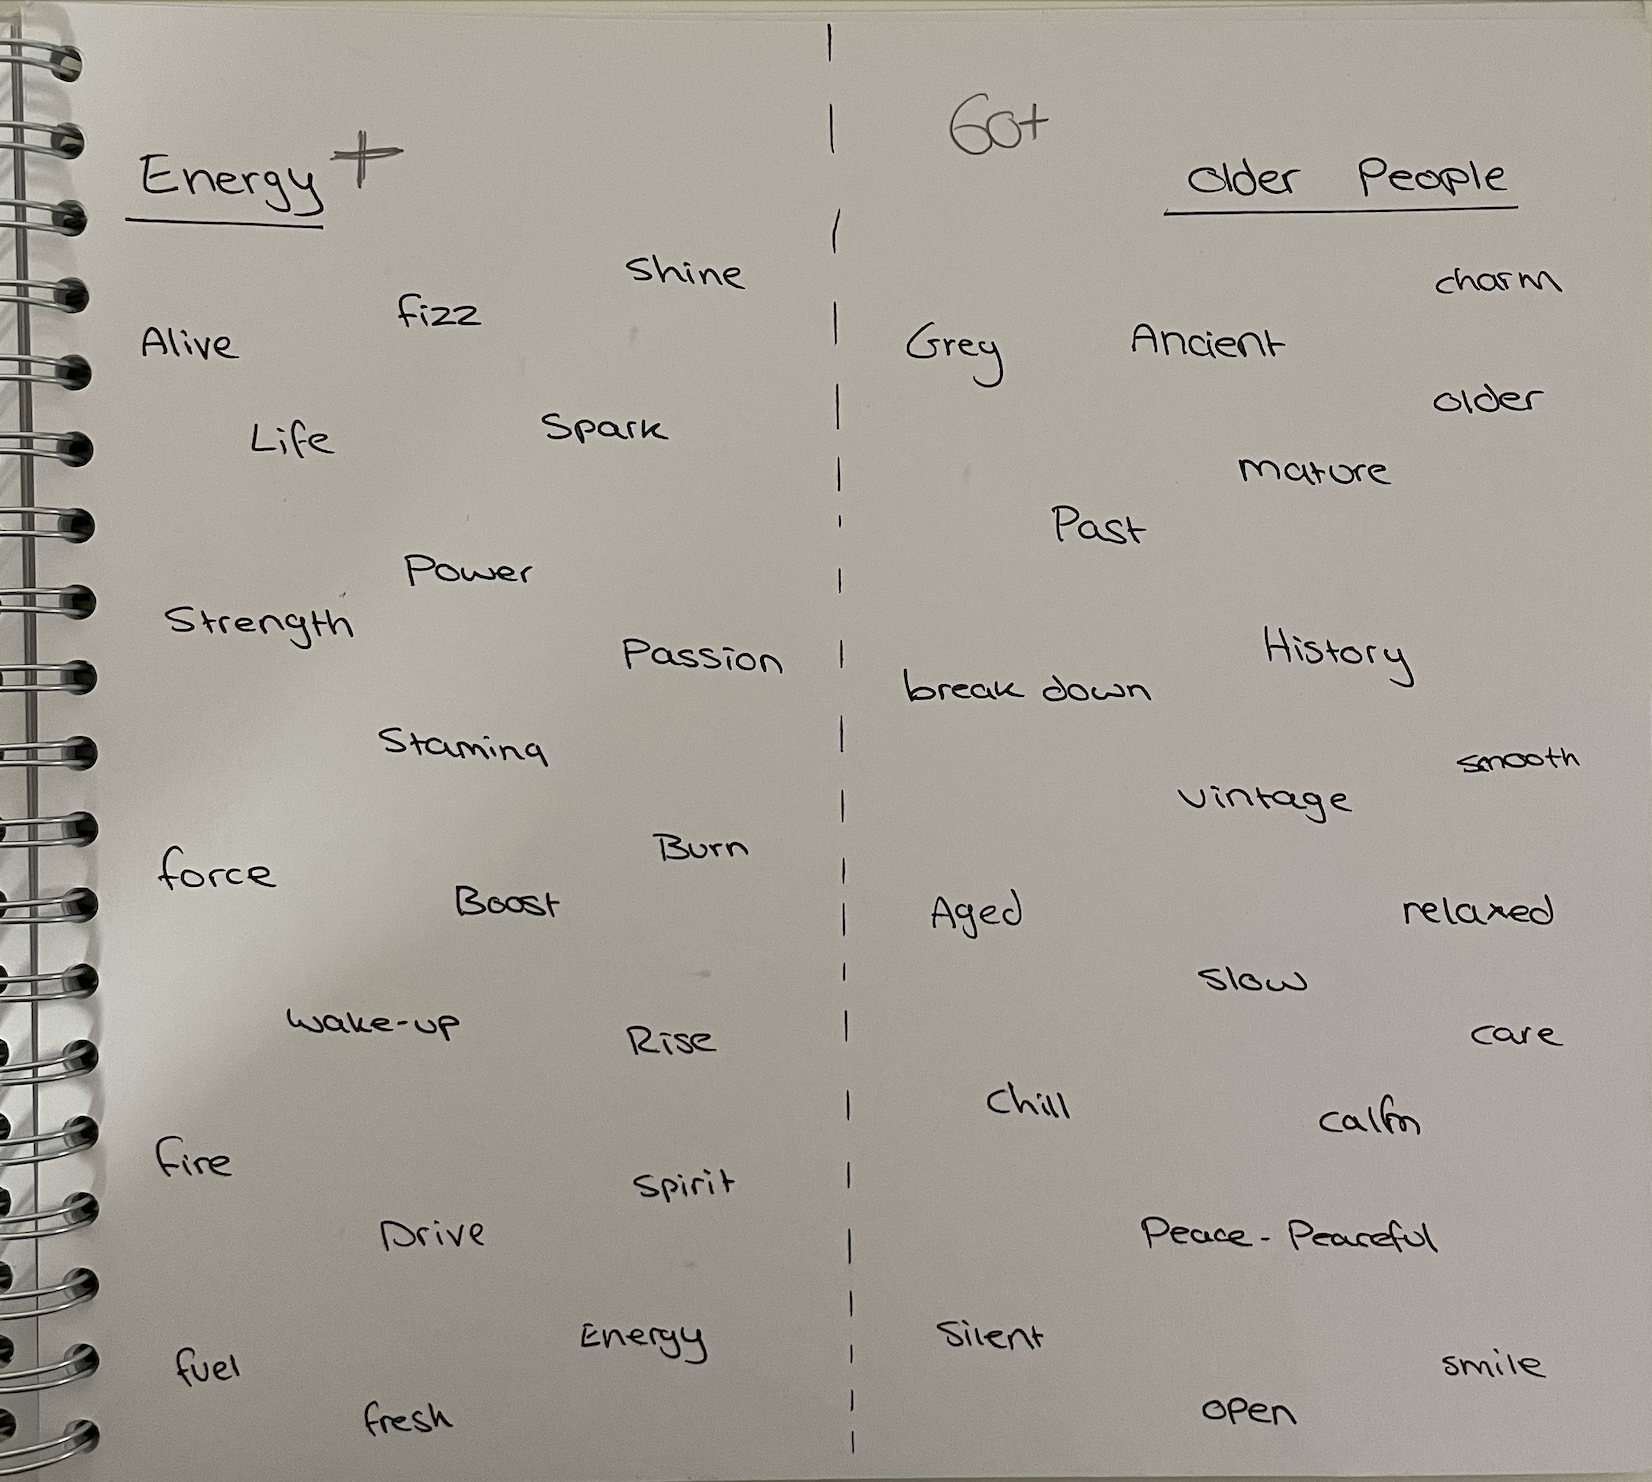 Energy +
Shine
fizz
Alive
Life
Spark
Power
Strength
Passion
Stamina
Burn
force
Boost
wake-up
Rise
fire
Spirit
Drive
Energy
fuel
fresh
60+
Older People
charm
Grey
Ancient
older
mature
Past
History
break down
smooth
vintage
Aged
relaxed
slow
care
Chill
calm
Peace - Peaceful
Silent
smile
open